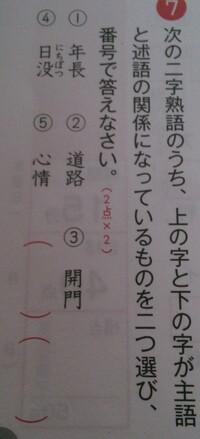 7
次の二字熟語のうち、上の字と下の字が主語
と述語の関係になっているものを二つ選び、
番号で答えなさい。(2点×2)
① 年長 ② 道路 ③ 開門
④ 日没 にちぼつ ⑤ 心情
( ) ( )